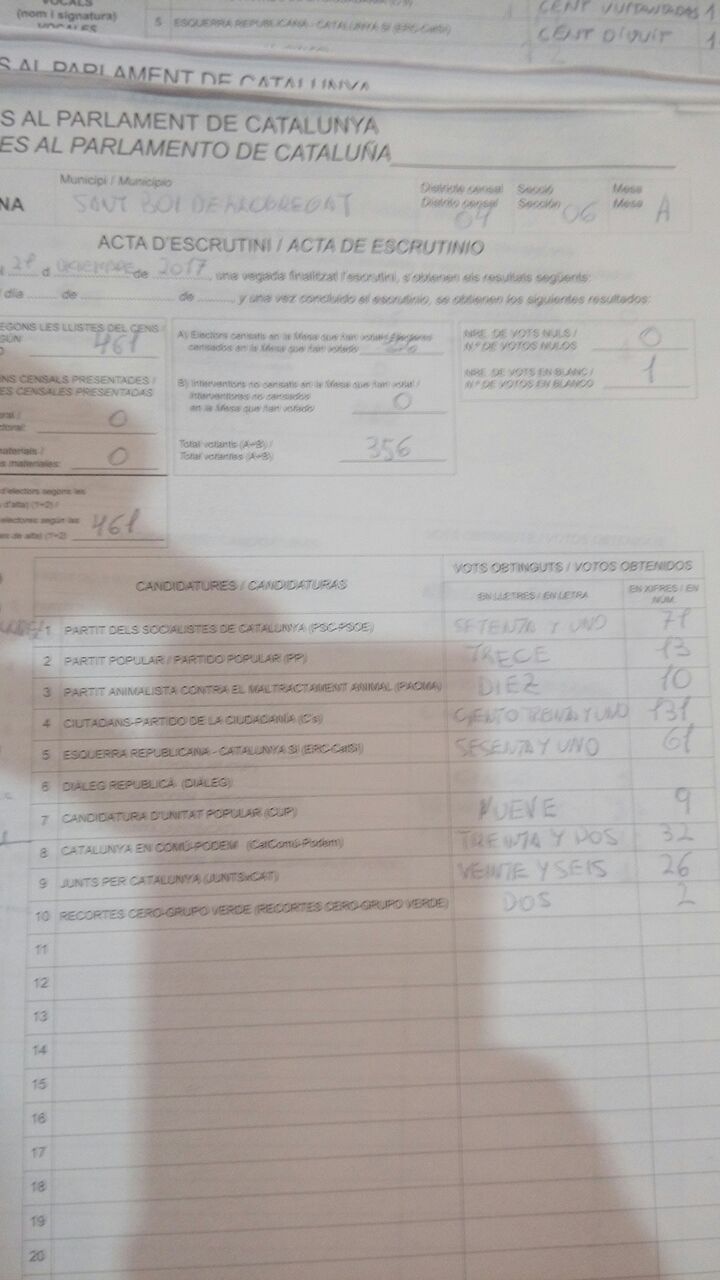 VOCALS
(nom i signatura)
VOCALES
CENT VUITANTADOS 1
5 ESQUERRA REPUBLICANA - CATALUNYA SÍ (ERC-CatSí)
CENT DIVUIT 1
S AL PARLAMENT DE CATALUNYA
S AL PARLAMENT DE CATALUNYA
ES AL PARLAMENTO DE CATALUÑA
NA
Municipi / Municipio
SANT BOI DE LLOBREGAT
Districte censal
Distrito censal 04
Secció
Sección 06
Mesa
Mesa A
ACTA D'ESCRUTINI / ACTA DE ESCRUTINIO
21 d DICIEMBRE de 2017, una vegada finalitzat l'escrutini, s'obtenen els resultats següents:
día ........ de ........ de ........, y una vez concluido el escrutinio, se obtienen los siguientes resultados:
EGONS LES LLISTES DEL CENS /
GÚN 461
NS CENSALS PRESENTADES /
ES CENSALES PRESENTADAS
oral /
ctoral: 0
materials /
s materiales: 0
d'electors segons les
d'alta) (1+2) /
electores según las
es de alta) (1+2) 461
A) Electors censats en la Mesa que han votat / Electores
censados en la Mesa que han votado
B) Interventors no censats en la Mesa que han votat /
Interventores no censados
en la Mesa que han votado 0
Total votants (A+B) /
Total votantes (A+B) 356
NRE. DE VOTS NULS /
N.º DE VOTOS NULOS 0
NRE. DE VOTS EN BLANC /
N.º DE VOTOS EN BLANCO 1
CANDIDATURES / CANDIDATURAS
VOTS OBTINGUTS / VOTOS OBTENIDOS
EN LLETRES / EN LETRA
EN XIFRES / EN NÚM.
1 PARTIT DELS SOCIALISTES DE CATALUNYA (PSC-PSOE) SETENTA Y UNO 71
2 PARTIT POPULAR / PARTIDO POPULAR (PP) TRECE 13
3 PARTIT ANIMALISTA CONTRA EL MALTRACTAMENT ANIMAL (PACMA) DIEZ 10
4 CIUTADANS-PARTIDO DE LA CIUDADANÍA (C's) CIENTO TRENTA Y UNO 131
5 ESQUERRA REPUBLICANA - CATALUNYA SÍ (ERC-CatSí) SESENTA Y UNO 61
6 DIÀLEG REPUBLICÀ (DIÀLEG)
7 CANDIDATURA D'UNITAT POPULAR (CUP) NUEVE 9
8 CATALUNYA EN COMÚ-PODEM (CatComú-Podem) TREINTA Y DOS 32
9 JUNTS PER CATALUNYA (JUNTSxCAT) VEINTE Y SEIS 26
10 RECORTES CERO-GRUPO VERDE (RECORTES CERO-GRUPO VERDE) DOS 2
11
12
13
14
15
16
17
18
19
20